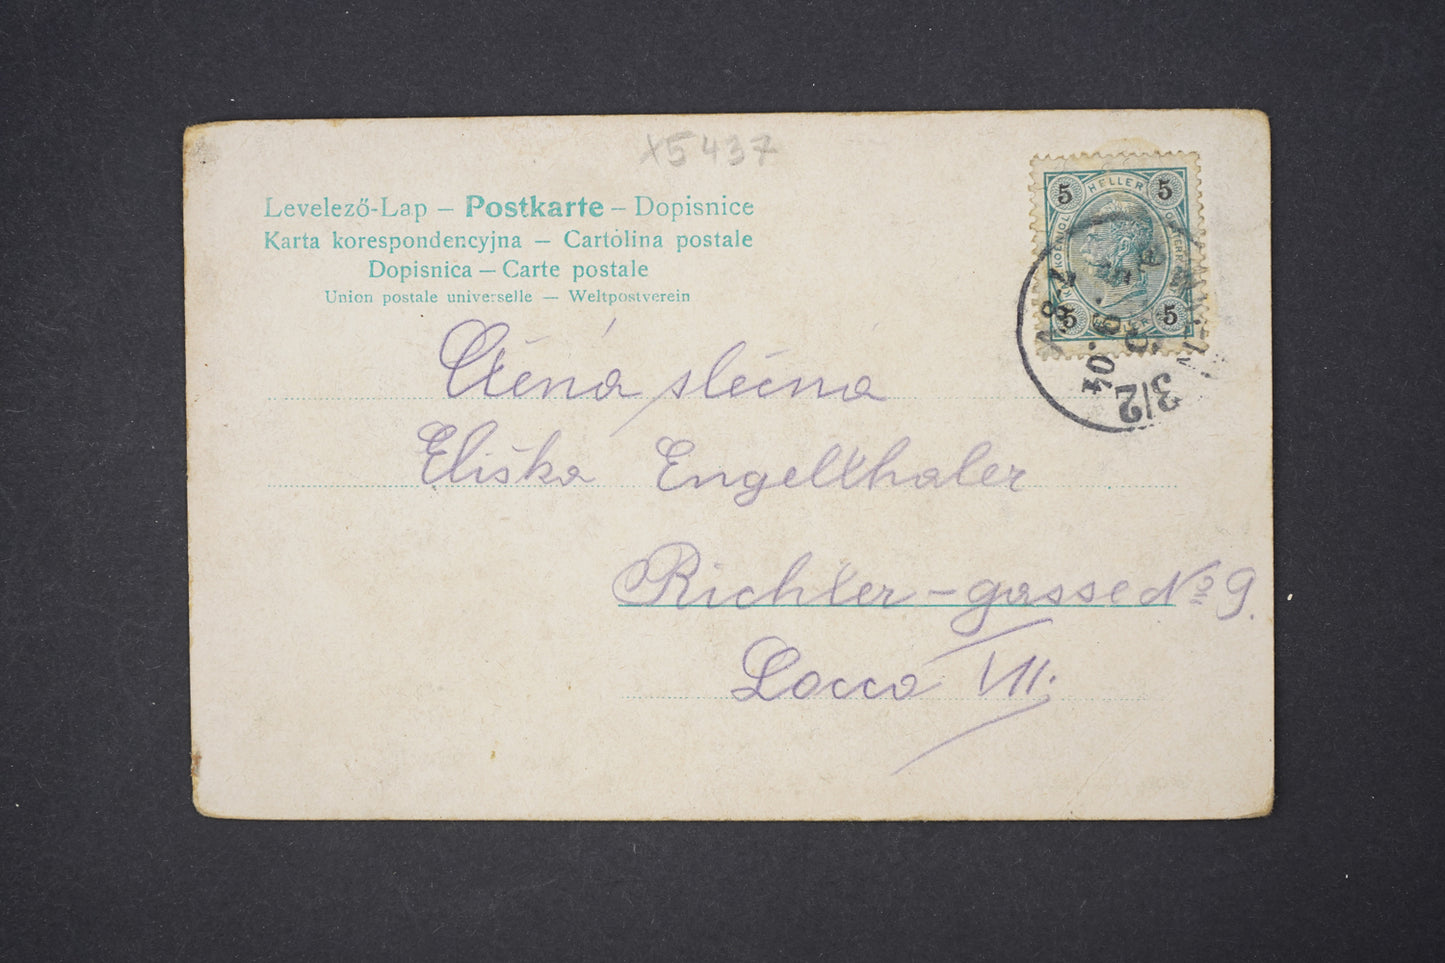 X5437
Levelező-Lap – Postkarte – Dopisnice
Karta korespondencyjna – Cartolina postale
Dopisnica – Carte postale
Union postale universelle – Weltpostverein
5 HELLER 5
5 5
30.6.04
3/2
Ctěná slečna
Eliška Engelthaler
Richter-gasse No 9.
Locco VII.